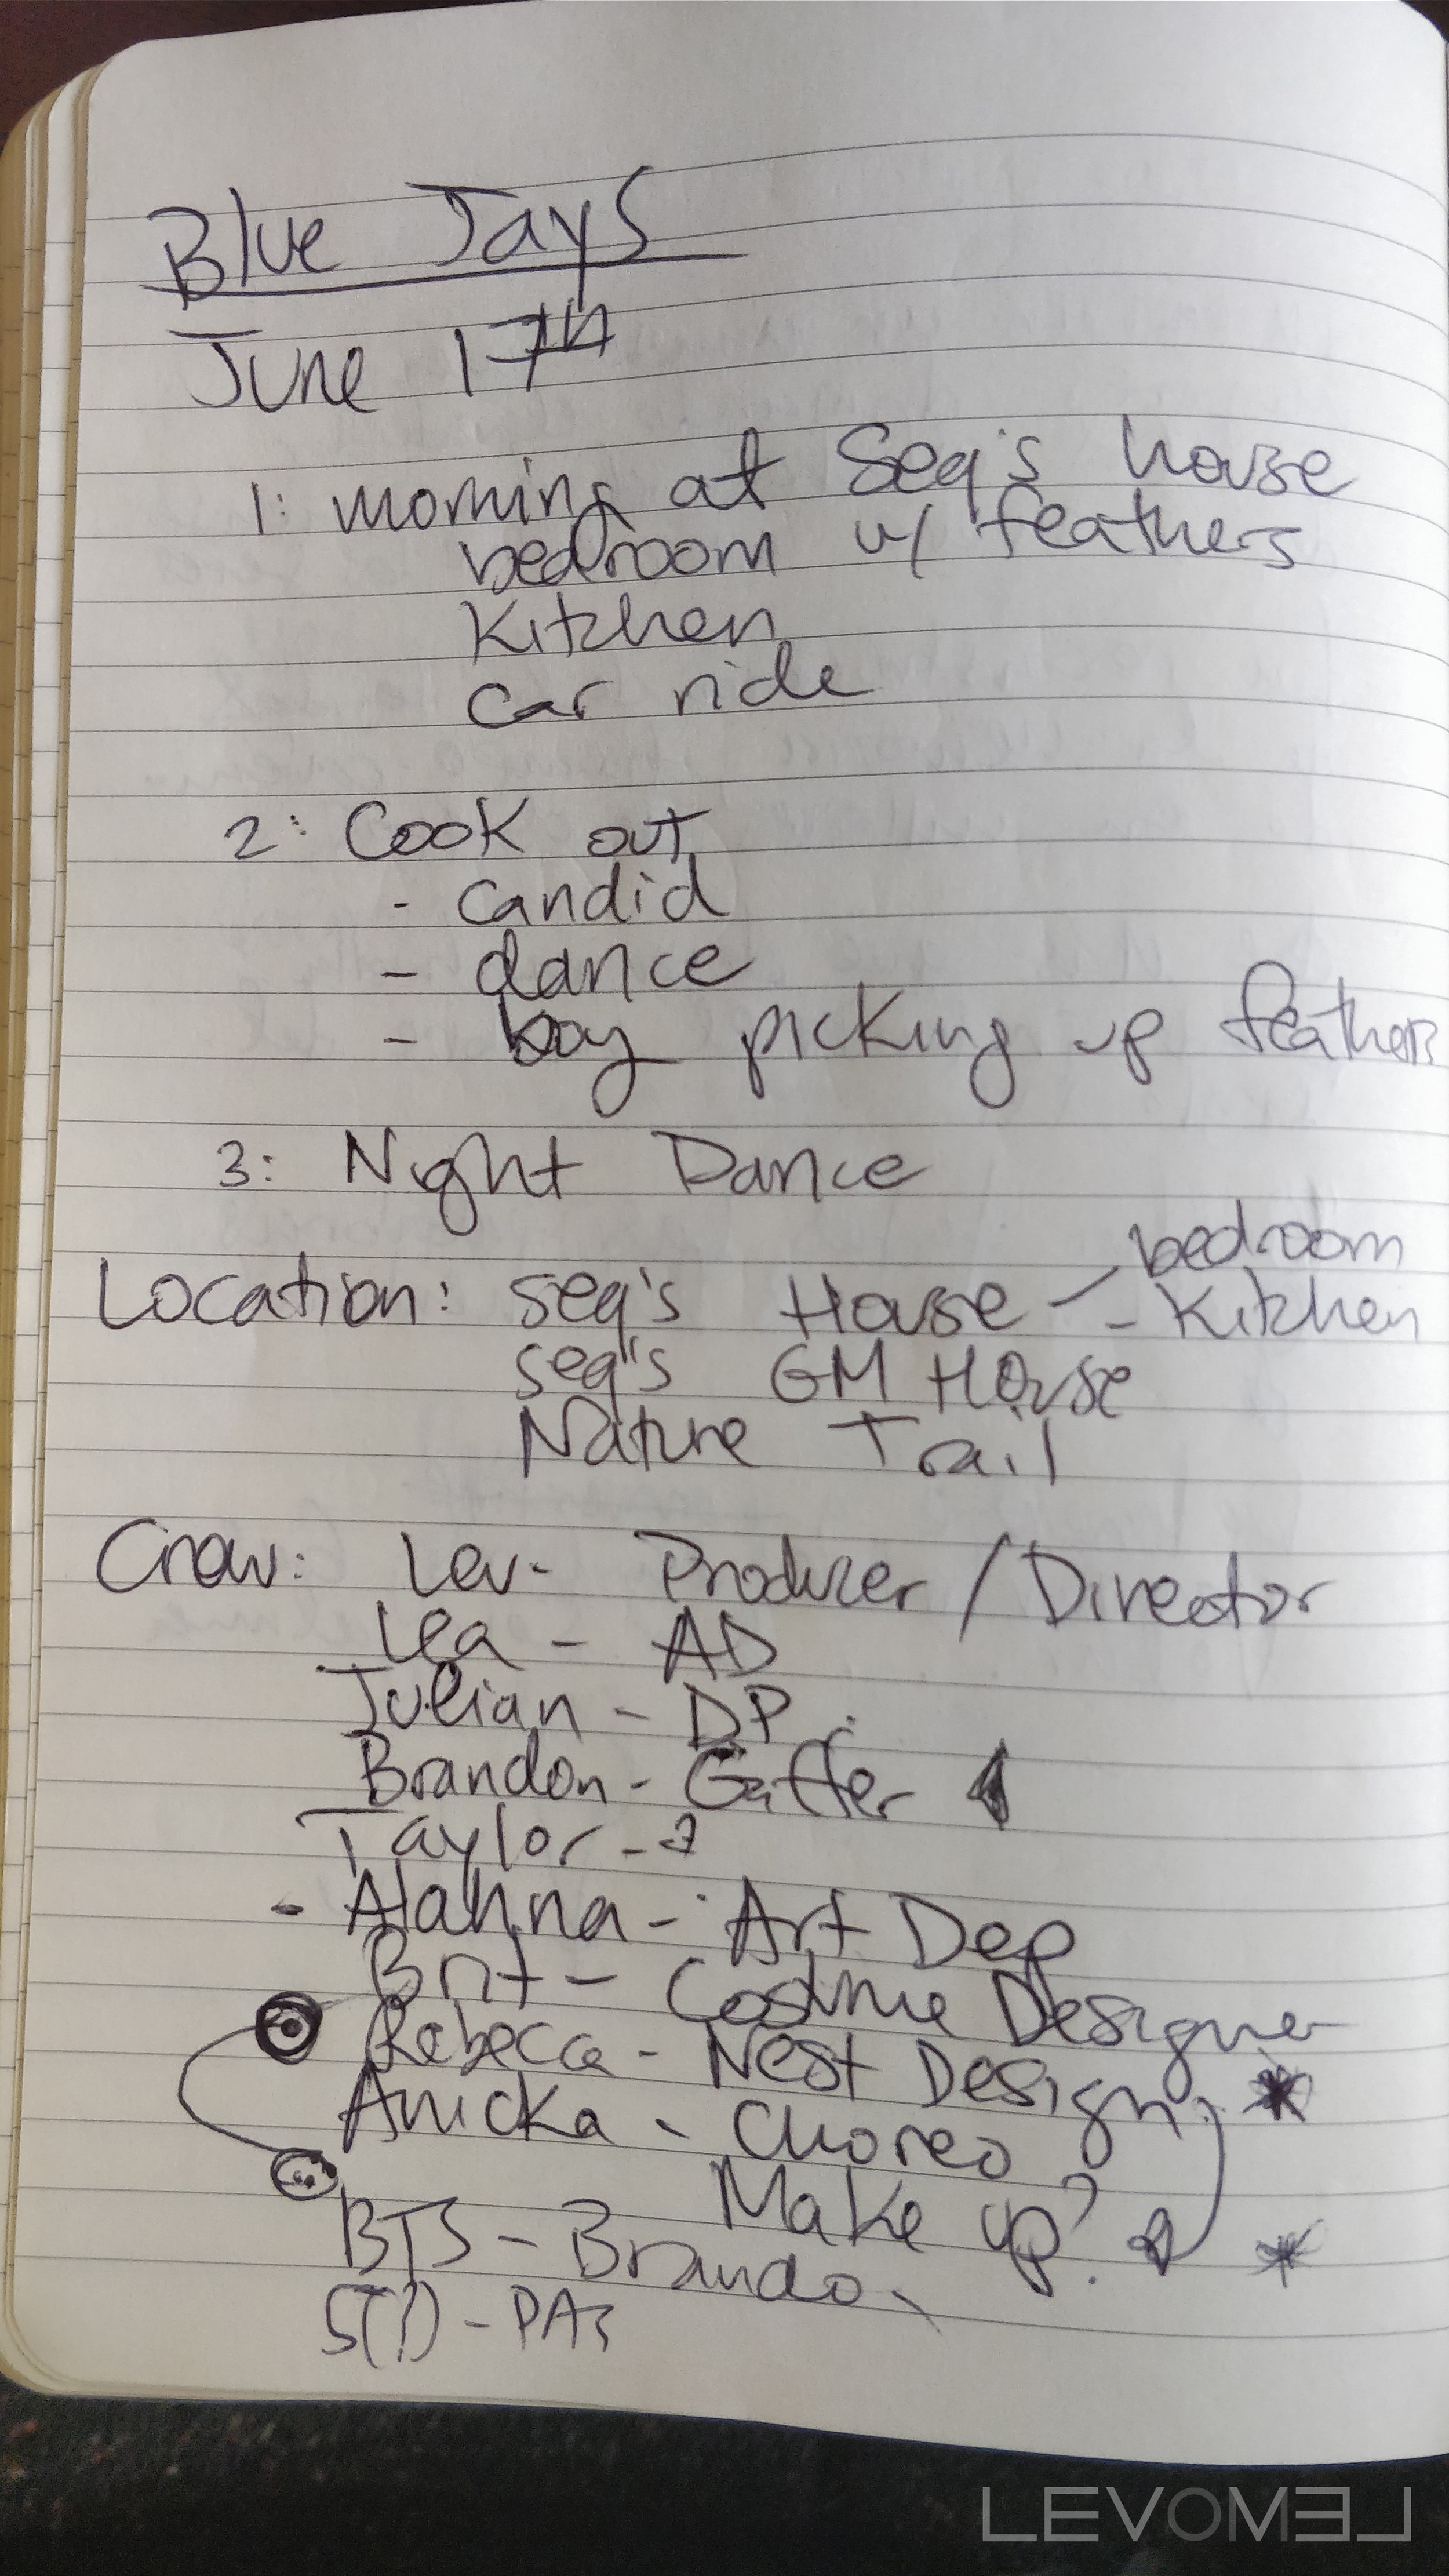 Blue Jays
June 17th
1: morning at Seq's house
bedroom w/ feathers
Kitchen
car ride
2: Cook out
- candid
- dance
- boy picking up feathers
3: Night Dance
Location: Seq's House - bedroom
- Kitchen
Seq's GM House
Nature Trail
Crew: Lev - Producer / Director
Lea - AD
Julian - DP
Brandon - Gaffer
Taylor - ?
- Alahna - Art Dep
Brit - Costume Designer
Rebecca - Nest Design *
Anicka - Choreo
Make up? *
BTS - Brando
5(?) - PAs
LEVOMEL